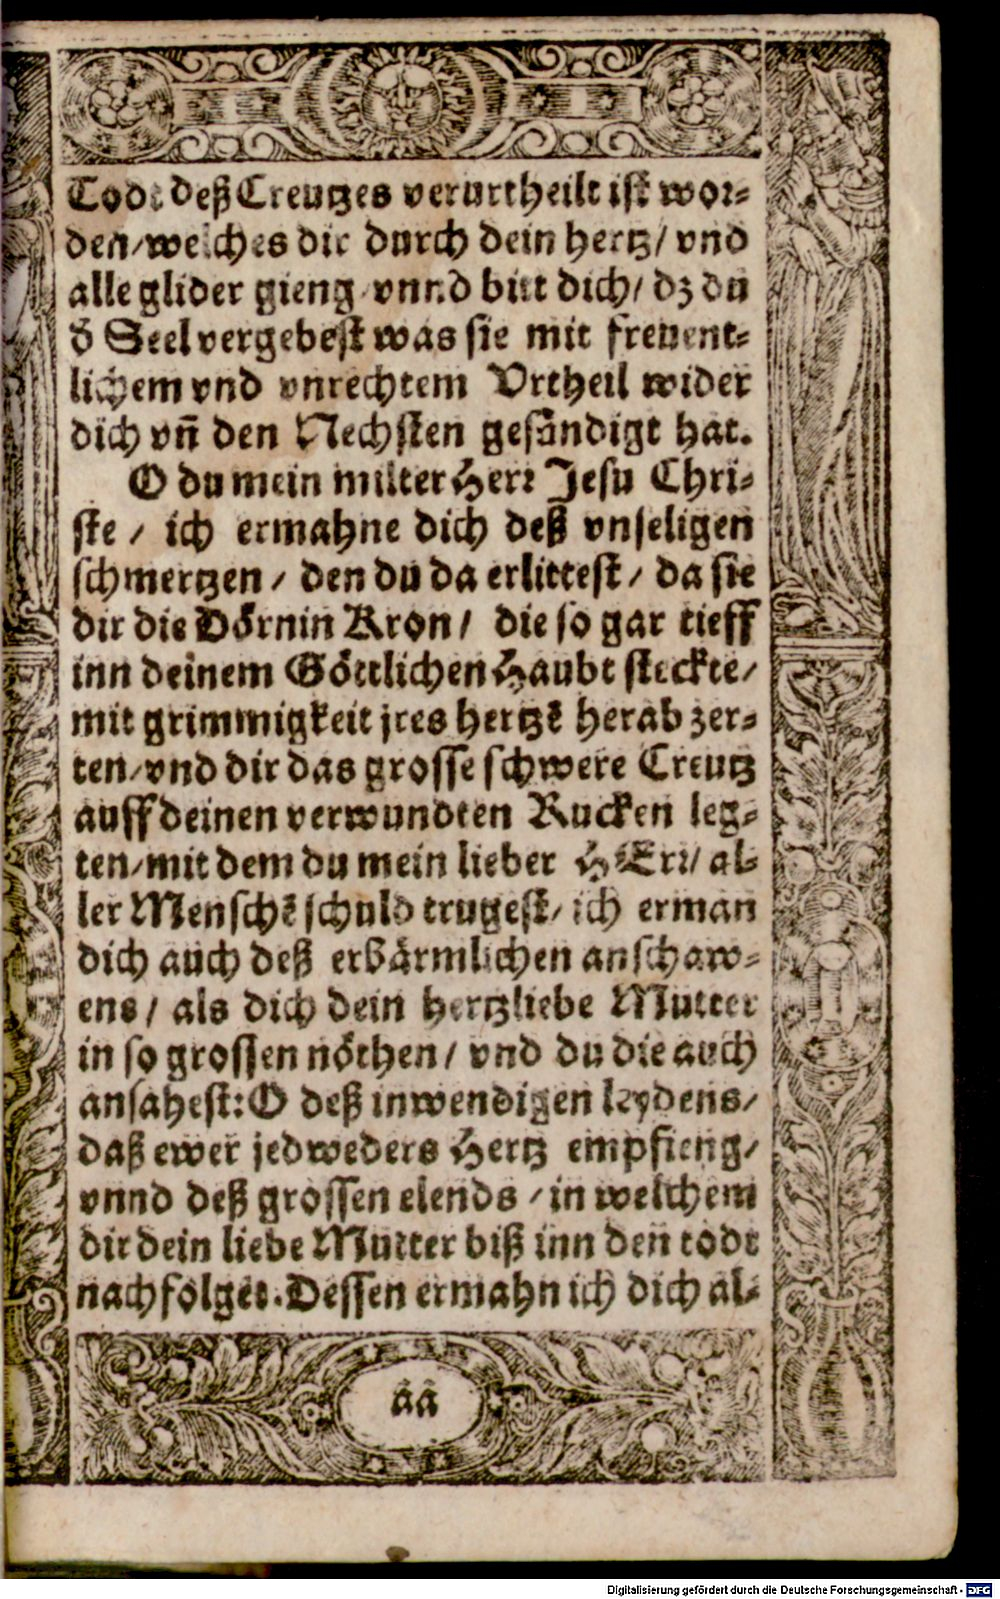 Todt deß Creutzes verurtheilt ist wor⸗
den/ welches dir durch dein hertz/ vnd
alle glider gieng/ vnnd bitt dich/ dz du
d̕ Seel vergebest was sie mit freuent⸗
lichem vnd vnrechtem Vrtheil wider
dich vñ den Nechsten gesündigt hat.
O du mein milter Herr Jesu Chri⸗
ste / ich ermahne dich deß vnseligen
schmertzen / den du da erlittest / da sie
dir die Dörnin Kron / die so gar tieff
inn deinem Göttlichen Haubt steckte/
mit grimmigkeit jres hertzē herab zer⸗
ten/ vnd dir das grosse schwere Creutz
auff deinen verwundten Rucken leg⸗
ten/ mit dem du mein lieber HErr/ al⸗
ler Menschē schuld trugest/ ich erman
dich auch deß erbärmlichen anschaw⸗
ens / als dich dein hertzliebe Mutter
in so grossen nöthen / vnd du die auch
ansahest: O deß inwendigen leydens/
daß ewer jedweders Hertz empfieng/
vnnd deß grossen elends / in welchem
dir dein liebe Mutter biß inn den todt
nachfolget. Dessen ermahn ich dich al⸗
ââ
Digitalisierung gefördert durch die Deutsche Forschungsgemeinschaft - DFG